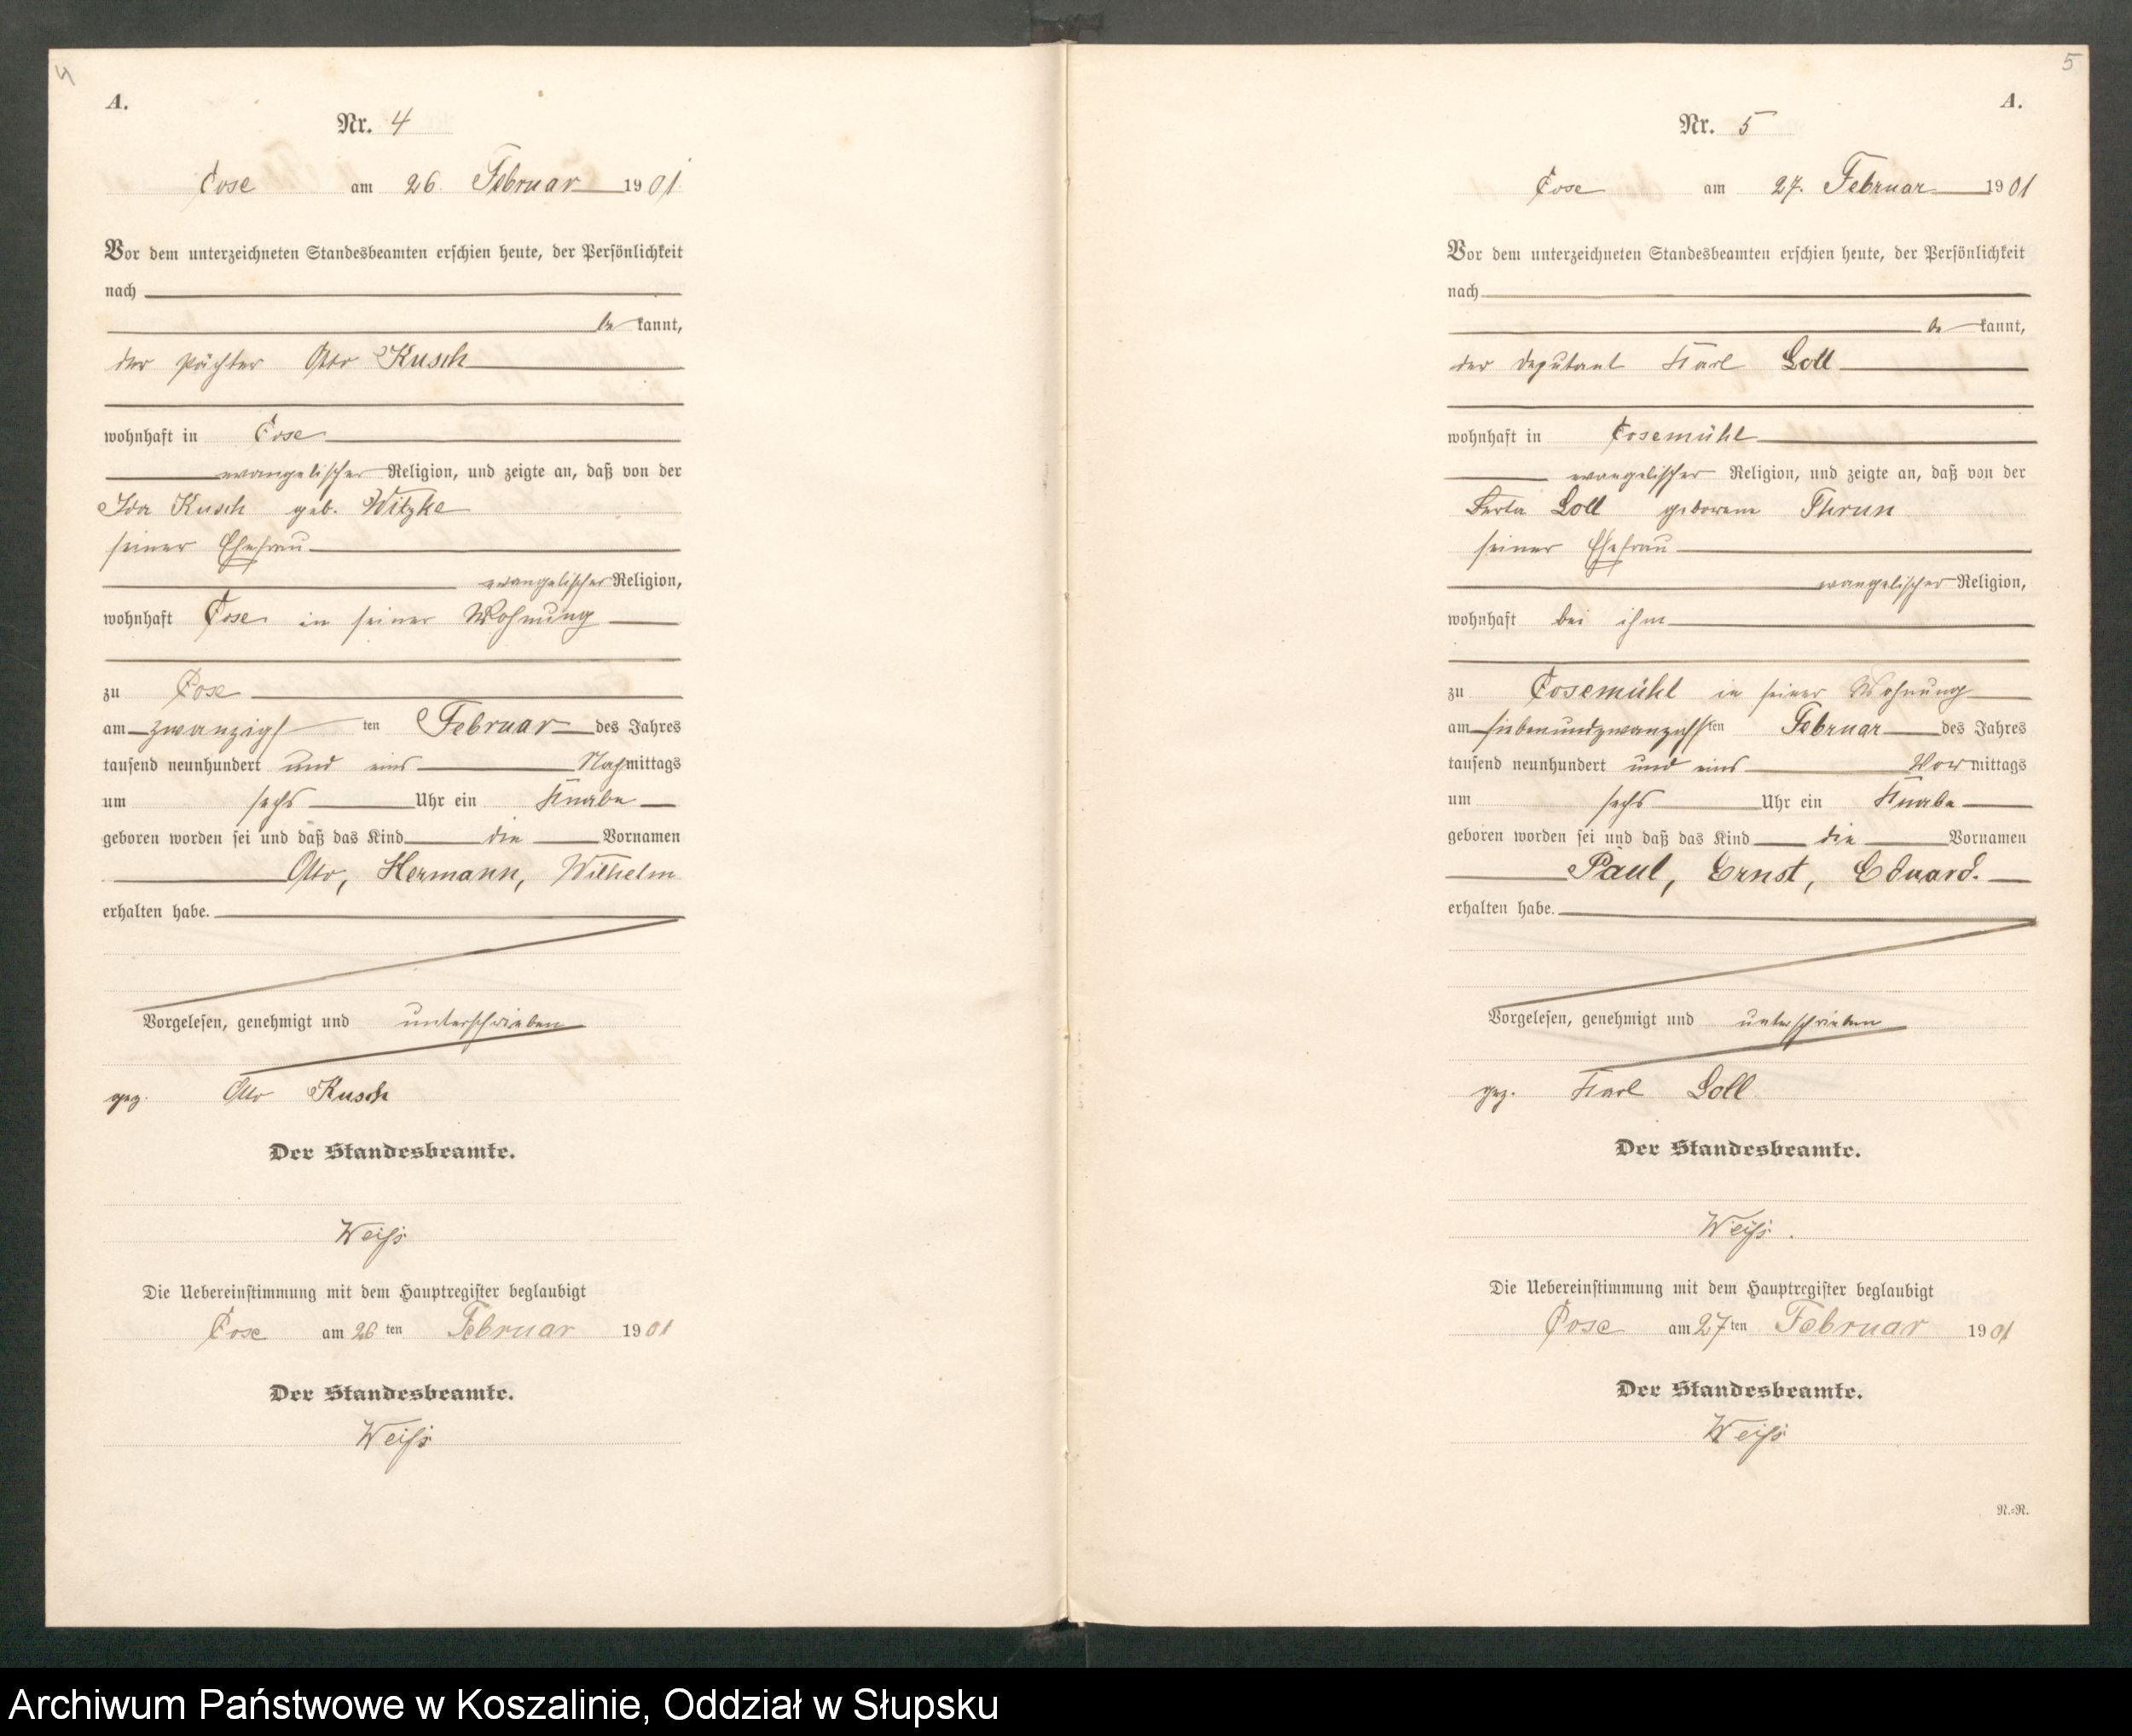 4
A.
Nr. 4
Cose am 26. Februar 1901
Vor dem unterzeichneten Standesbeamten erschien heute, der Persönlichkeit
nach
be kannt,
der Pächter Otto Kusch
wohnhaft in Cose
evangelischer Religion, und zeigte an, daß von der
Ida Kusch geb. Witzke
seiner Ehefrau
evangelischer Religion,
wohnhaft Cose in seiner Wohnung
zu Cose
am zwanzigsten Februar des Jahres
tausend neunhundert und eins Nachmittags
um sechs Uhr ein Knabe
geboren worden sei und daß das Kind die Vornamen
Otto, Hermann, Wilhelm
erhalten habe.
Vorgelesen, genehmigt und unterschrieben
gez. Otto Kusch
Der Standesbeamte.
Weiß
Die Uebereinstimmung mit dem Hauptregister beglaubigt
Cose am 26ten Februar 1901
Der Standesbeamte.
Weiß
5
A.
Nr. 5
Cose am 27. Februar 1901
Vor dem unterzeichneten Standesbeamten erschien heute, der Persönlichkeit
nach
be kannt,
der Deputant Karl Loll
wohnhaft in Cosemühl
evangelischer Religion, und zeigte an, daß von der
Berta Loll geborene Thrun
seiner Ehefrau
evangelischer Religion,
wohnhaft bei ihm
zu Cosemühl in seiner Wohnung
am siebenundzwanzigsten Februar des Jahres
tausend neunhundert und eins Vormittags
um sechs Uhr ein Knabe
geboren worden sei und daß das Kind die Vornamen
Paul, Ernst, Eduard.
erhalten habe.
Vorgelesen, genehmigt und unterschrieben
gez. Karl Loll
Der Standesbeamte.
Weiß.
Die Uebereinstimmung mit dem Hauptregister beglaubigt
Cose am 27ten Februar 1901
Der Standesbeamte.
Weiß
N.=N.
Archiwum Państwowe w Koszalinie, Oddział w Słupsku